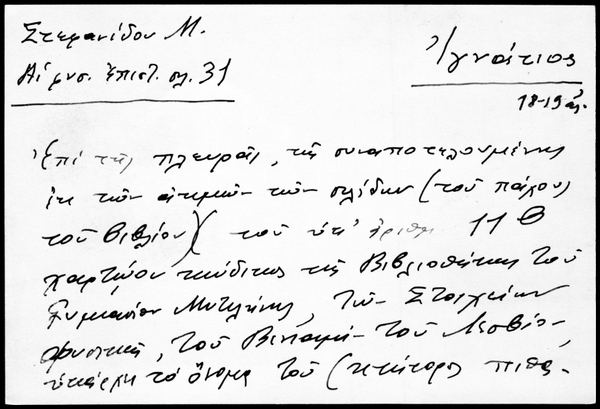 Στεφανίδου Μ.
Αἱ φυσ. Ἐπιστ. σλ. 31
Ἰγνάτιος
18-19 αἰ.
Ἐπὶ τῆς πλευρᾶς, τῆς συναποτελουμένης
ἐκ τῶν ἀκμῶν τῶν σελίδων (τοῦ πάχους
τοῦ βιβλίου) τοῦ ὑπ' ἀριθμ 11 θ
χαρτώου κώδικος τῆς Βιβλιοθήκης τοῦ
Γυμνασίου Μυτιλήνης, τῶν Στοιχείων
φυσικῆς, τοῦ Βενιαμὶν τοῦ Λεσβίου,
ὑπάρχει τὸ ὄνομα τοῦ (κτήτορος πιθα-